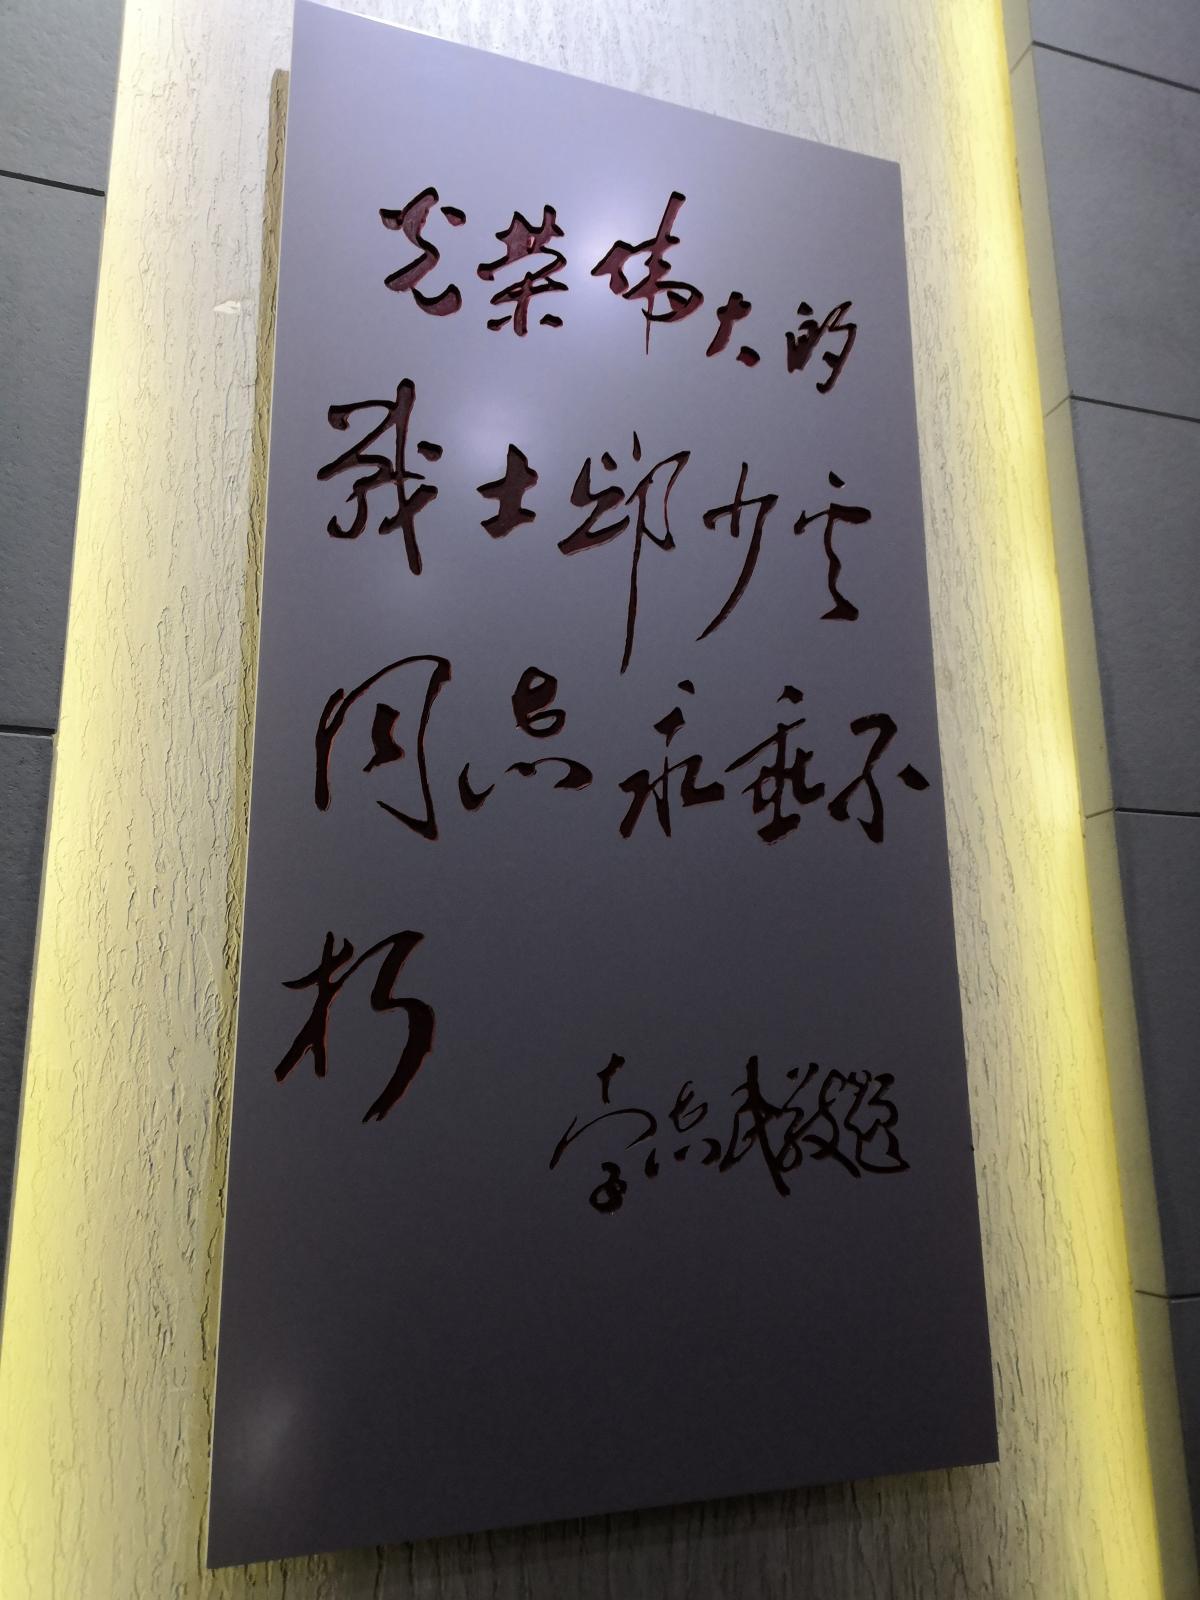 光荣伟大的
战士邱少云
同志永垂不
朽
李志民敬题